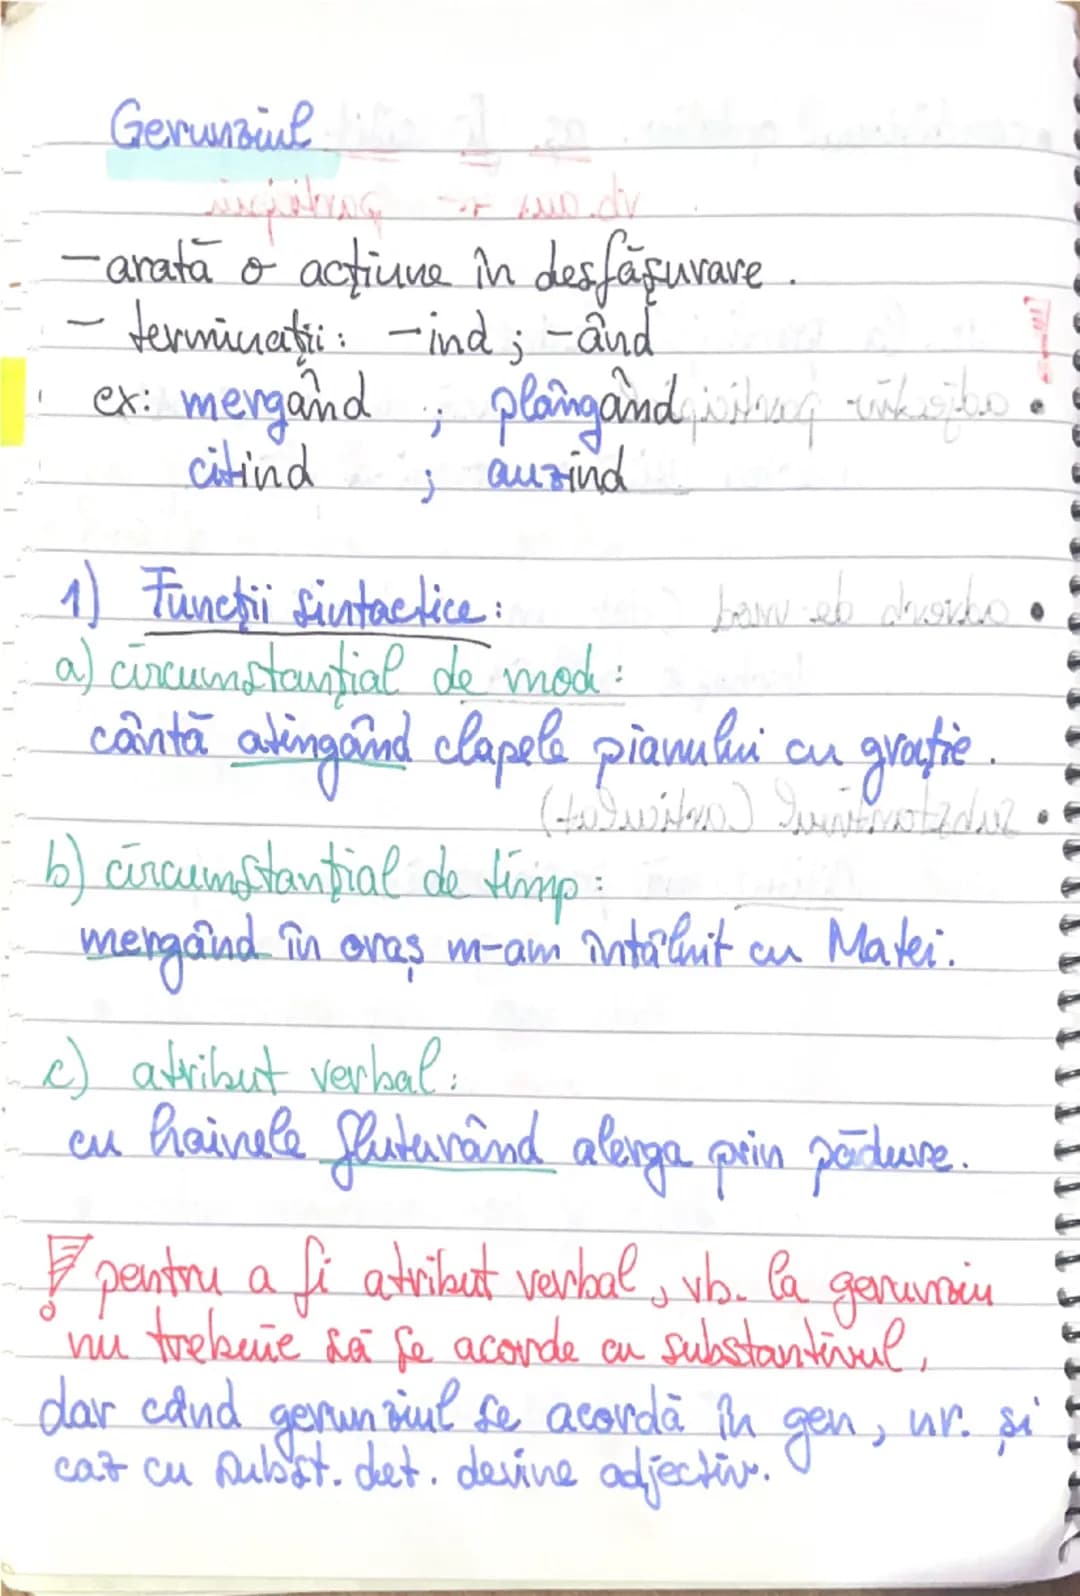 Gerunziul
- arată o acțiune în desfășurare.
- terminații: -ind ; -ând
ex: mergând ; plângând
citind ; auzind
1) Funcții sintactice:
a) circumstanțial de mod:
cântă atingând clapele pianului cu grație.
b) circumstanțial de timp:
mergând în oraș m-am întâlnit cu Matei.
c) atribut verbal:
cu hainele fluturând alerga prin pădure.
! pentru a fi atribut verbal, vb. la gerunziu
nu trebuie să se acorde cu substantivul,
dar când gerunziul se acordă în gen, nr. și
caz cu subst. det. devine adjectiv.